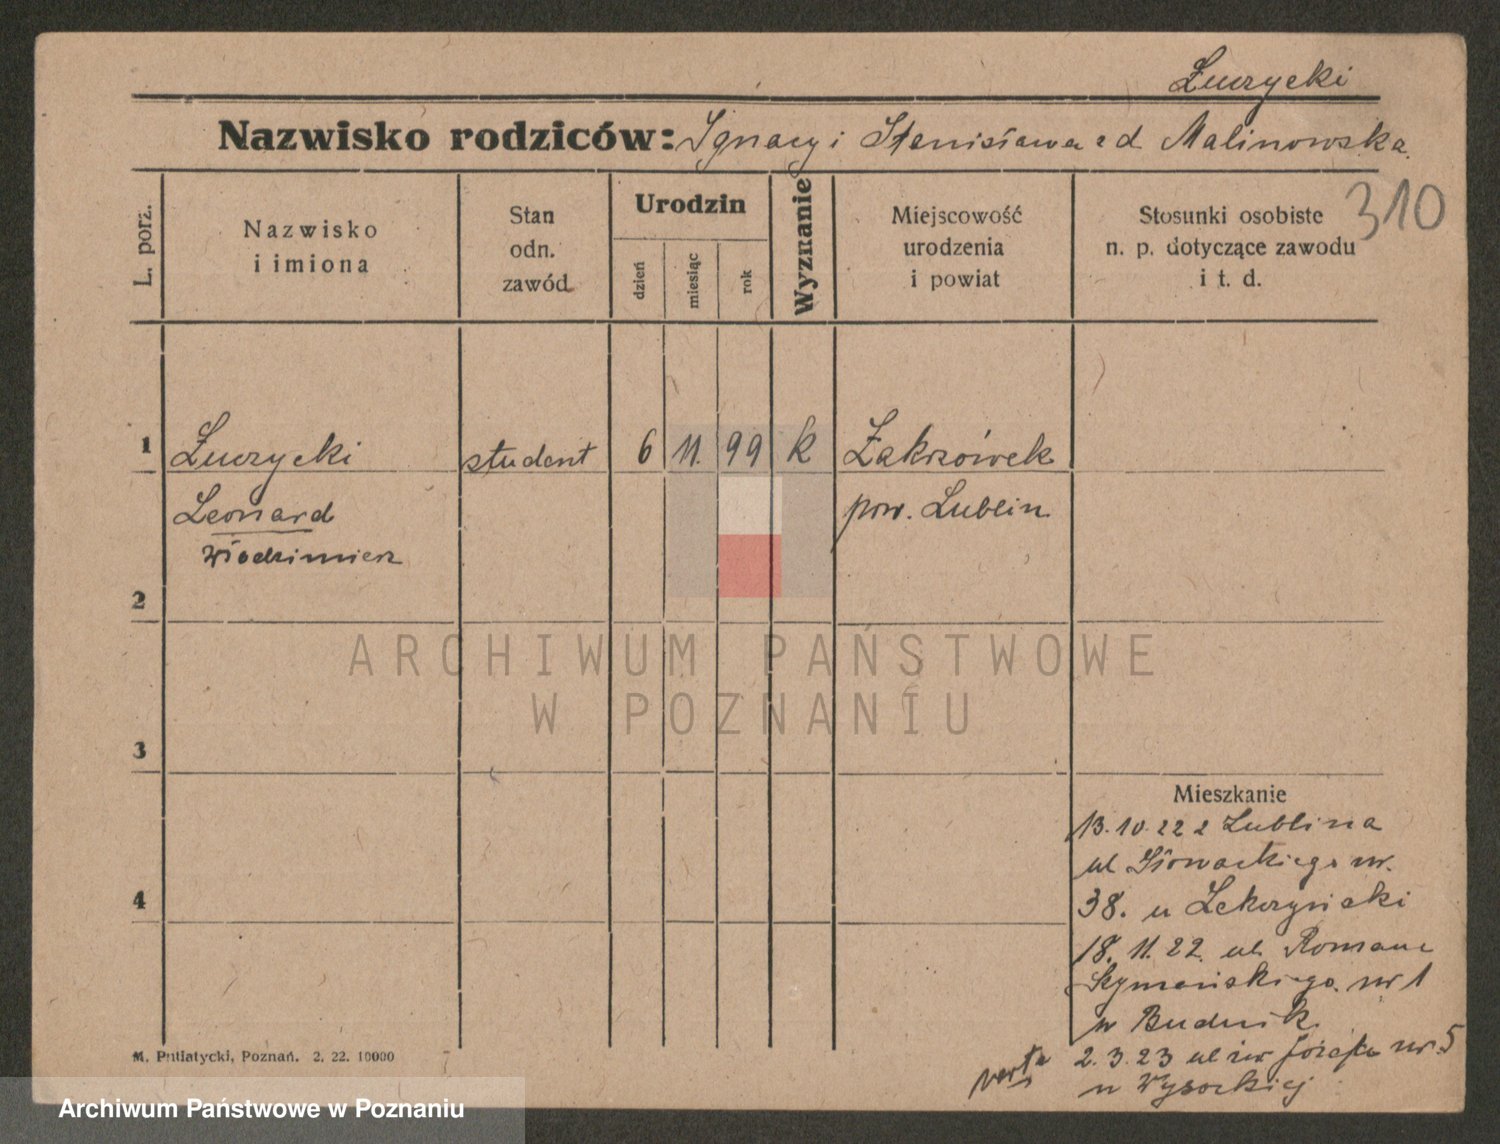 Żurzycki
Nazwisko rodziców: Ignacy i Stenisława z d. Malinowska
310
L. porz.
Nazwisko
i imiona
Stan
odn.
zawód
Urodzin
dzień
miesiąc
rok
Wyznanie
Miejscowość
urodzenia
i powiat
Stosunki osobiste
n. p. dotyczące zawodu
i t. d.
1
Żurzycki
student
6
11.
99
k
Zakrzówek
Leonard
pow. Lublin
Włodzimierz
2
ARCHIWUM PAŃSTWOWE
W POZNANIU
3
4
Mieszkanie
13.10.22 z Lublina
ul Słowackiego nr.
38. u
18.11.22. ul. Romana
Szymańskiego nr 1
u Budnik
2.3.23 ul św Józefa nr. 5
u Wysockiej
verte
M. Putiatycki, Poznań. 2. 22. 10000
Archiwum Państwowe w Poznaniu